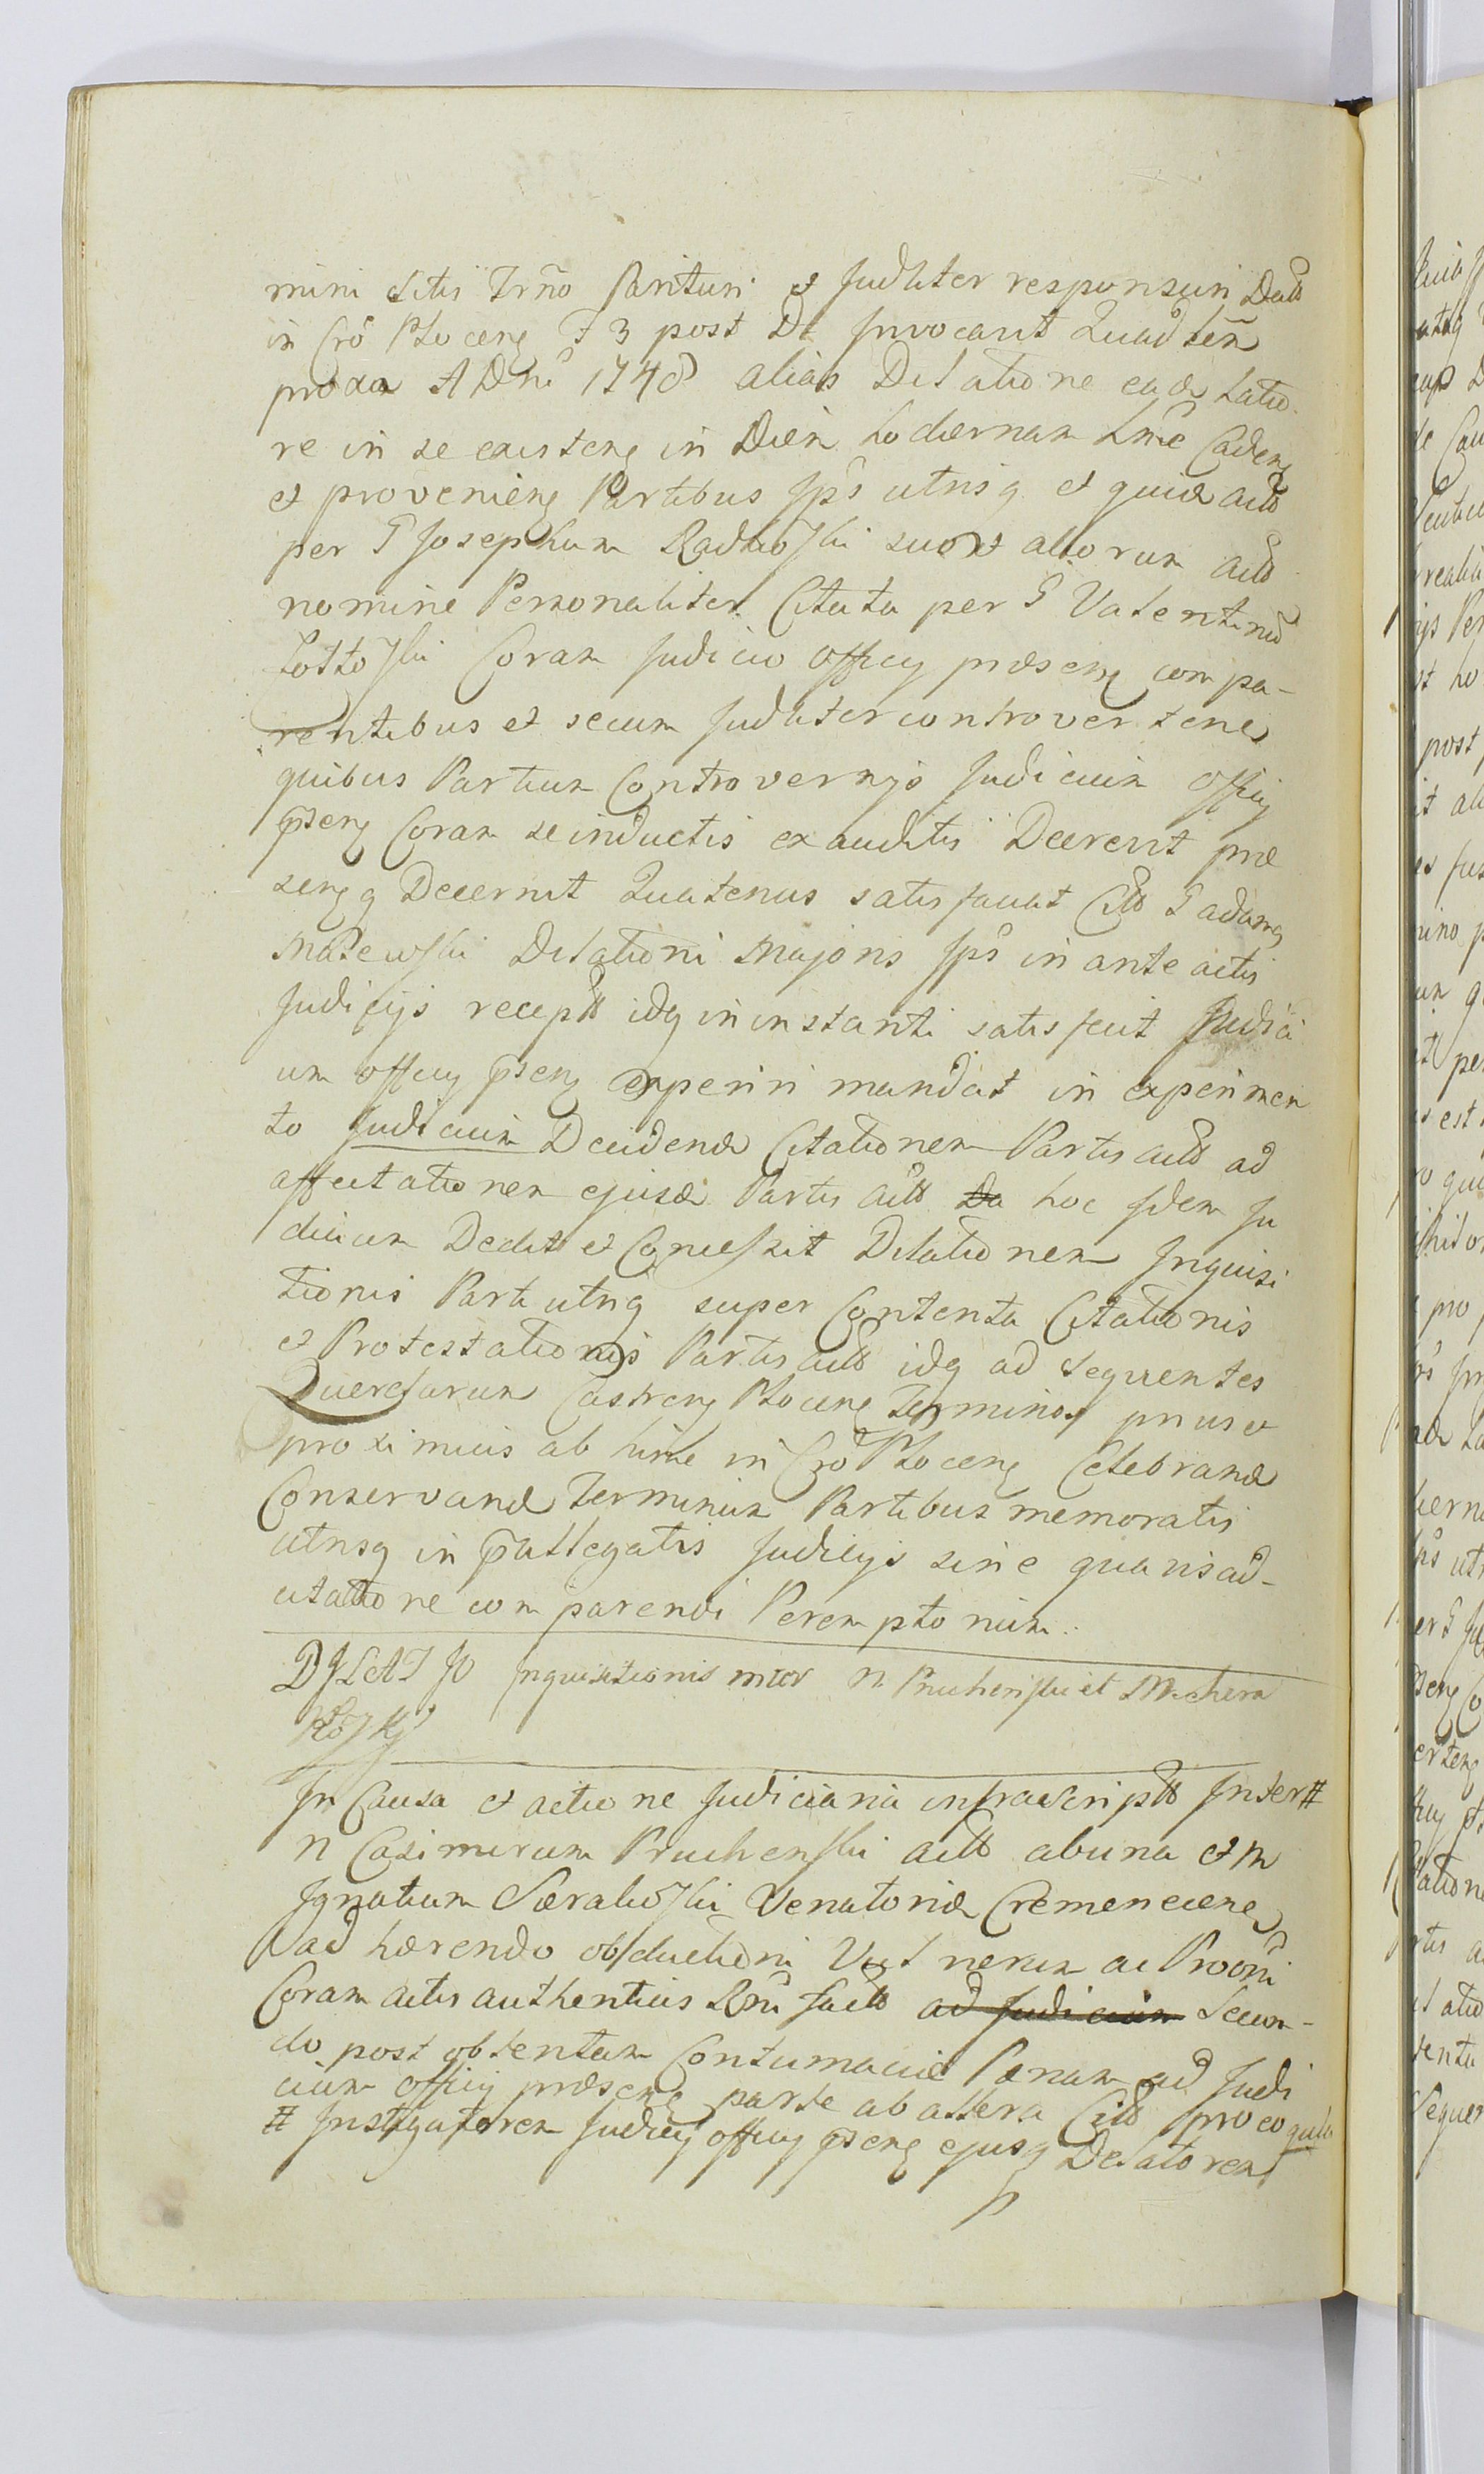 mini Litis Trño Parituri et Judliter responsuri Datt
in Cro Ploceng F 3 post Do Invocavit Quadlen
proxa A Dni 1748 alias Dilatione eade latio
re in se existeng in Diem hodiernam hne Cadeng
et provenieng Partibus Jps utrisq et quide actt
per G Josephum Radzio𝔣ski suo et aliorum actt
nomine Personaliter Citata per G Valentinu
Lotto𝔣ski Coram Judicio Officy præseng compa-
rentibus et secum Judliter controverteng
quibus Partium Controversijs Judicium Officy
pseng Coram se inductis exauditis Decrevit præ
sengq Decernit Quatenus satisfaciat Citt G adamq
Mazewski Dilationi Majoris Jps in anteactis
Judicijs receptt idq in instanti satisfecit Judici
um officy pseng experiri mandat in experimen
to Judicium Decidend Citationem Partis actt ad
affectationem ejusd Partis actt Da hoc Idem Ju
dicium Dedit et Concessit Dilationem Inquisi
tionis Parti utriq super Contenta Citationis
et Protestationis Partis actt idq ad Sequentes
Querelarum Castreng Ploceng Terminos prius et
proximius ab hinc in Cro Ploceng Celebrand
Conservand Terminum Partibus memoratis
utrisq in pallegatis Judicijs sine quavis ad-
citatione comparendi Peremptorium.
DJLATJO Inquisitionis inter N Pruchenski et Mschera
Ro𝔣ski
In Causa et actione Judiciaria infrascriptt Inter #
N Casimirum Pruchenski actt ab una et M
Ignatium Særalio𝔣ski Venatorid Cremeneceng
ad hærendo obductioni Vulnerum ac Prooni
Coram actis authenticis Rni factt ad Judicium Secun-
do post obtentam Contumaciæ Pænam ad Judi
cium officy præseng parte ab altera Citt pro eo quia
# Instigatorem Judicy officy pseng ejusq Delatorem